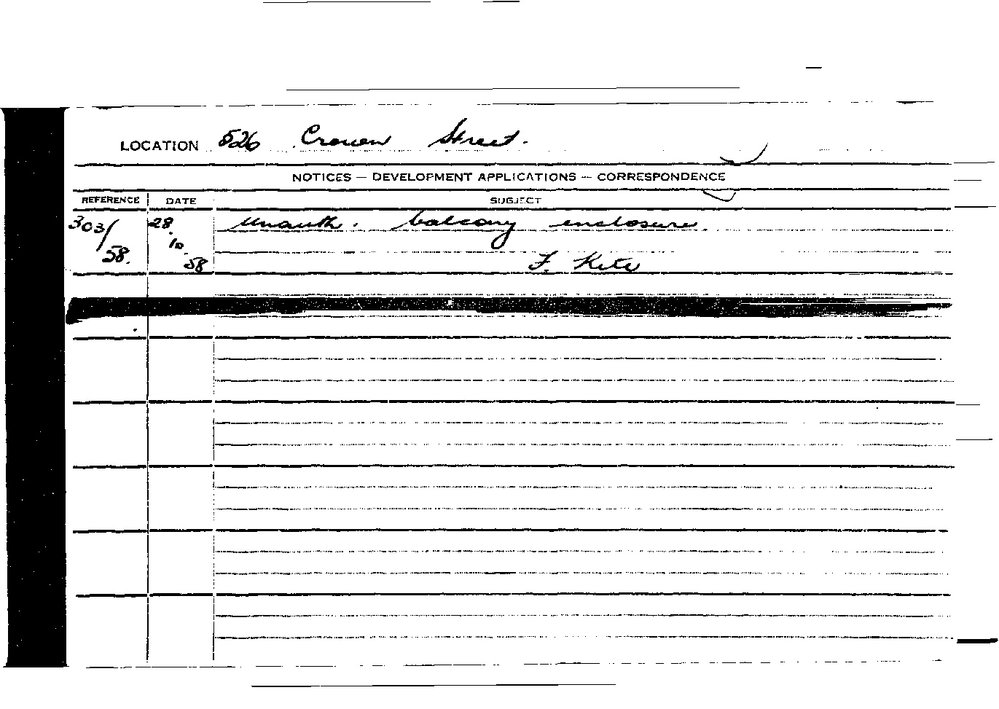 LOCATION 526 Crown Street.
NOTICES — DEVELOPMENT APPLICATIONS — CORRESPONDENCE
REFERENCE DATE SUBJECT
303/58. 28.10.58 Unauth. balcony enclosure.
F. Kite